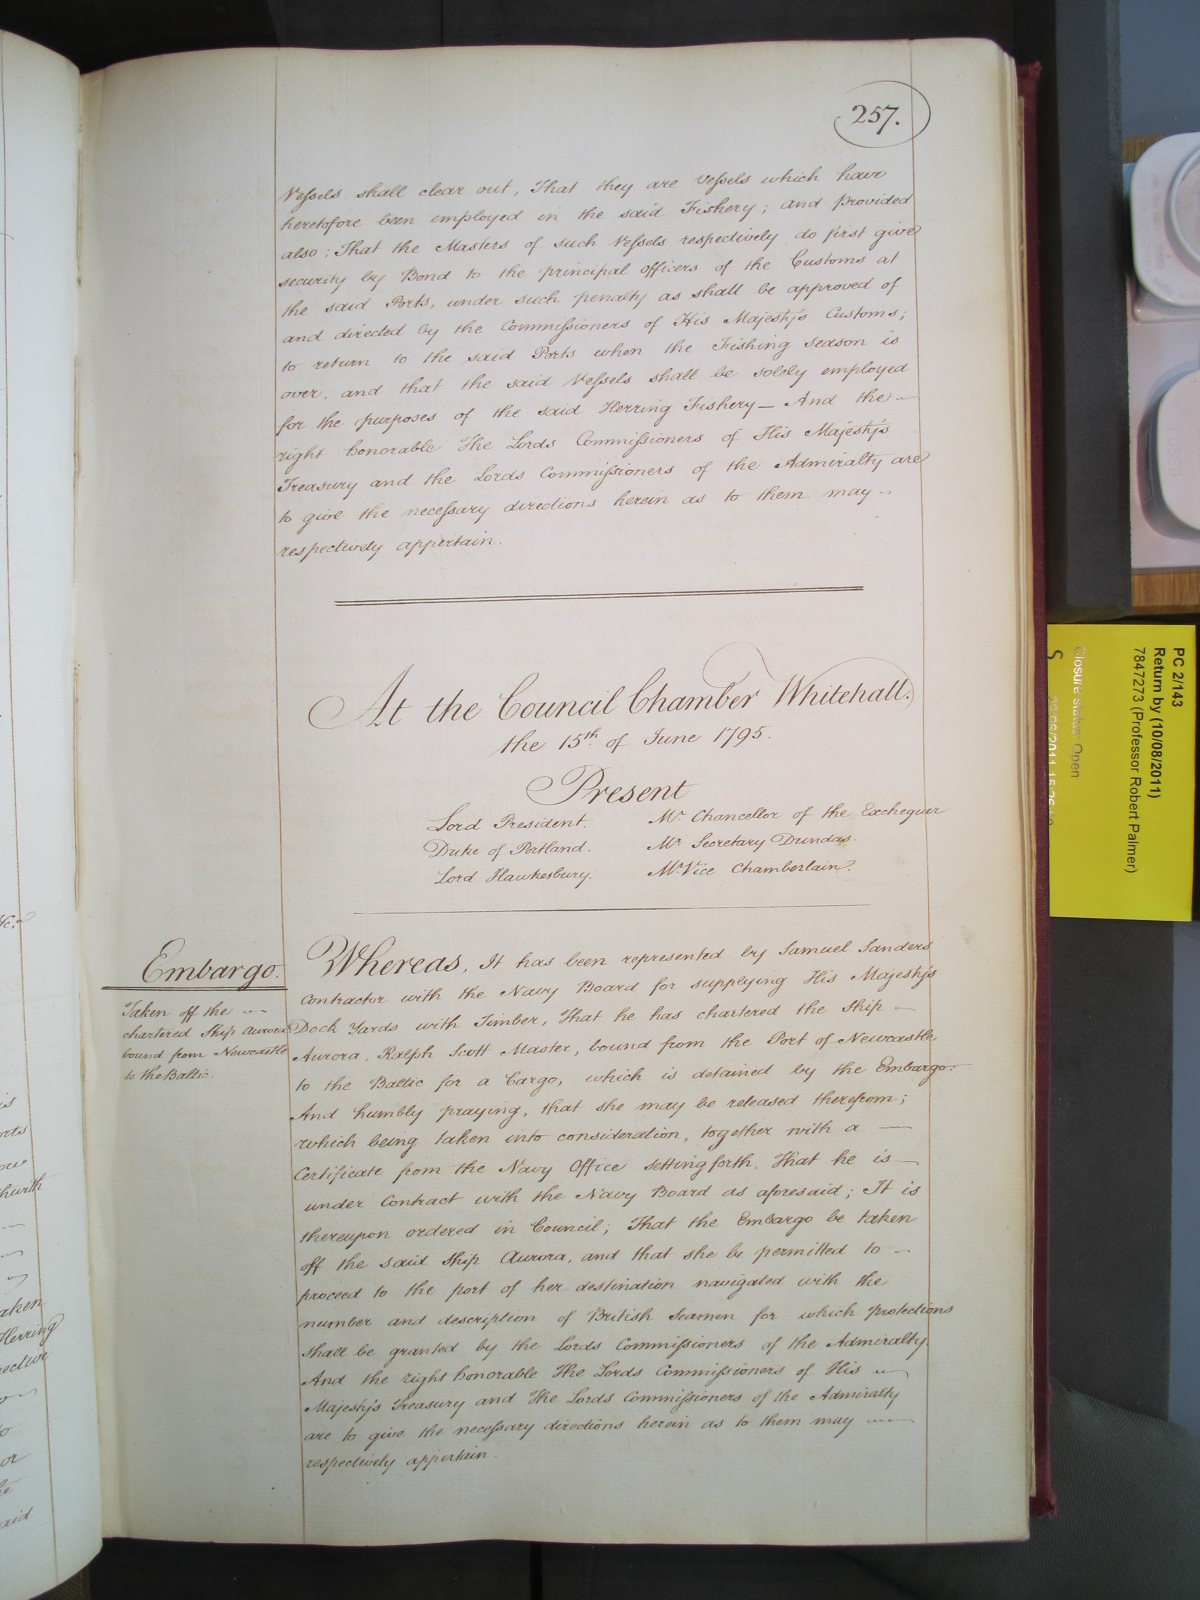 257.
Vessels shall clear out, That they are Vessels which have
heretofore been employed in the said Fishery; and Provided
also; That the Masters of such Vessels respectively do first give
security by Bond to the principal officers of the Customs at
the said Ports, under such penalty as shall be approved of
and directed by the Commissioners of His Majesty's Customs;
to return to the said Ports when the Fishing season is
over, and that the said Vessels shall be solely employed
for the purposes of the said Herring Fishery — And the —
right honorable The Lords Commissioners of His Majesty's
Treasury and the Lords Commissioners of the Admiralty are
to give the necessary directions herein as to them may
respectively appertain.
At the Council Chamber Whitehall.
the 15th of June 1795.
Present
Lord President. Mr Chancellor of the Exchequer
Duke of Portland. Mr Secretary Dundas.
Lord Hawkesbury. Mr Vice Chamberlain.
Embargo.
Taken off the
chartered Ship Aurora
bound from Newcastle
to the Baltic.
Whereas, It has been represented by Samuel Sanders
Contractor with the Navy Board for supplying His Majesty's
Dock Yards with Timber, That he has chartered the Ship —
Aurora, Ralph Scott Master, bound from the Port of Newcastle
to the Baltic for a Cargo, which is detained by the Embargo:
And humbly praying, that she may be released therefrom;
which being taken into consideration, together with a —
Certificate from the Navy Office setting forth, That he is —
under Contract with the Navy Board as aforesaid; It is
thereupon ordered in Council; That the Embargo be taken
off the said Ship Aurora, and that she be permitted to —
proceed to the port of her destination navigated with the
number and description of British Seamen for which protections
shall be granted by the Lords Commissioners of the Admiralty.
And the right honorable The Lords Commissioners of His
Majesty's Treasury and The Lords Commissioners of the Admiralty
are to give the necessary directions herein as to them may
respectively appertain.
PC 2/143
Return by (10/08/2011)
7847273 (Professor Robert Palmer)
Closure status: Open
S
taken
Herring
or